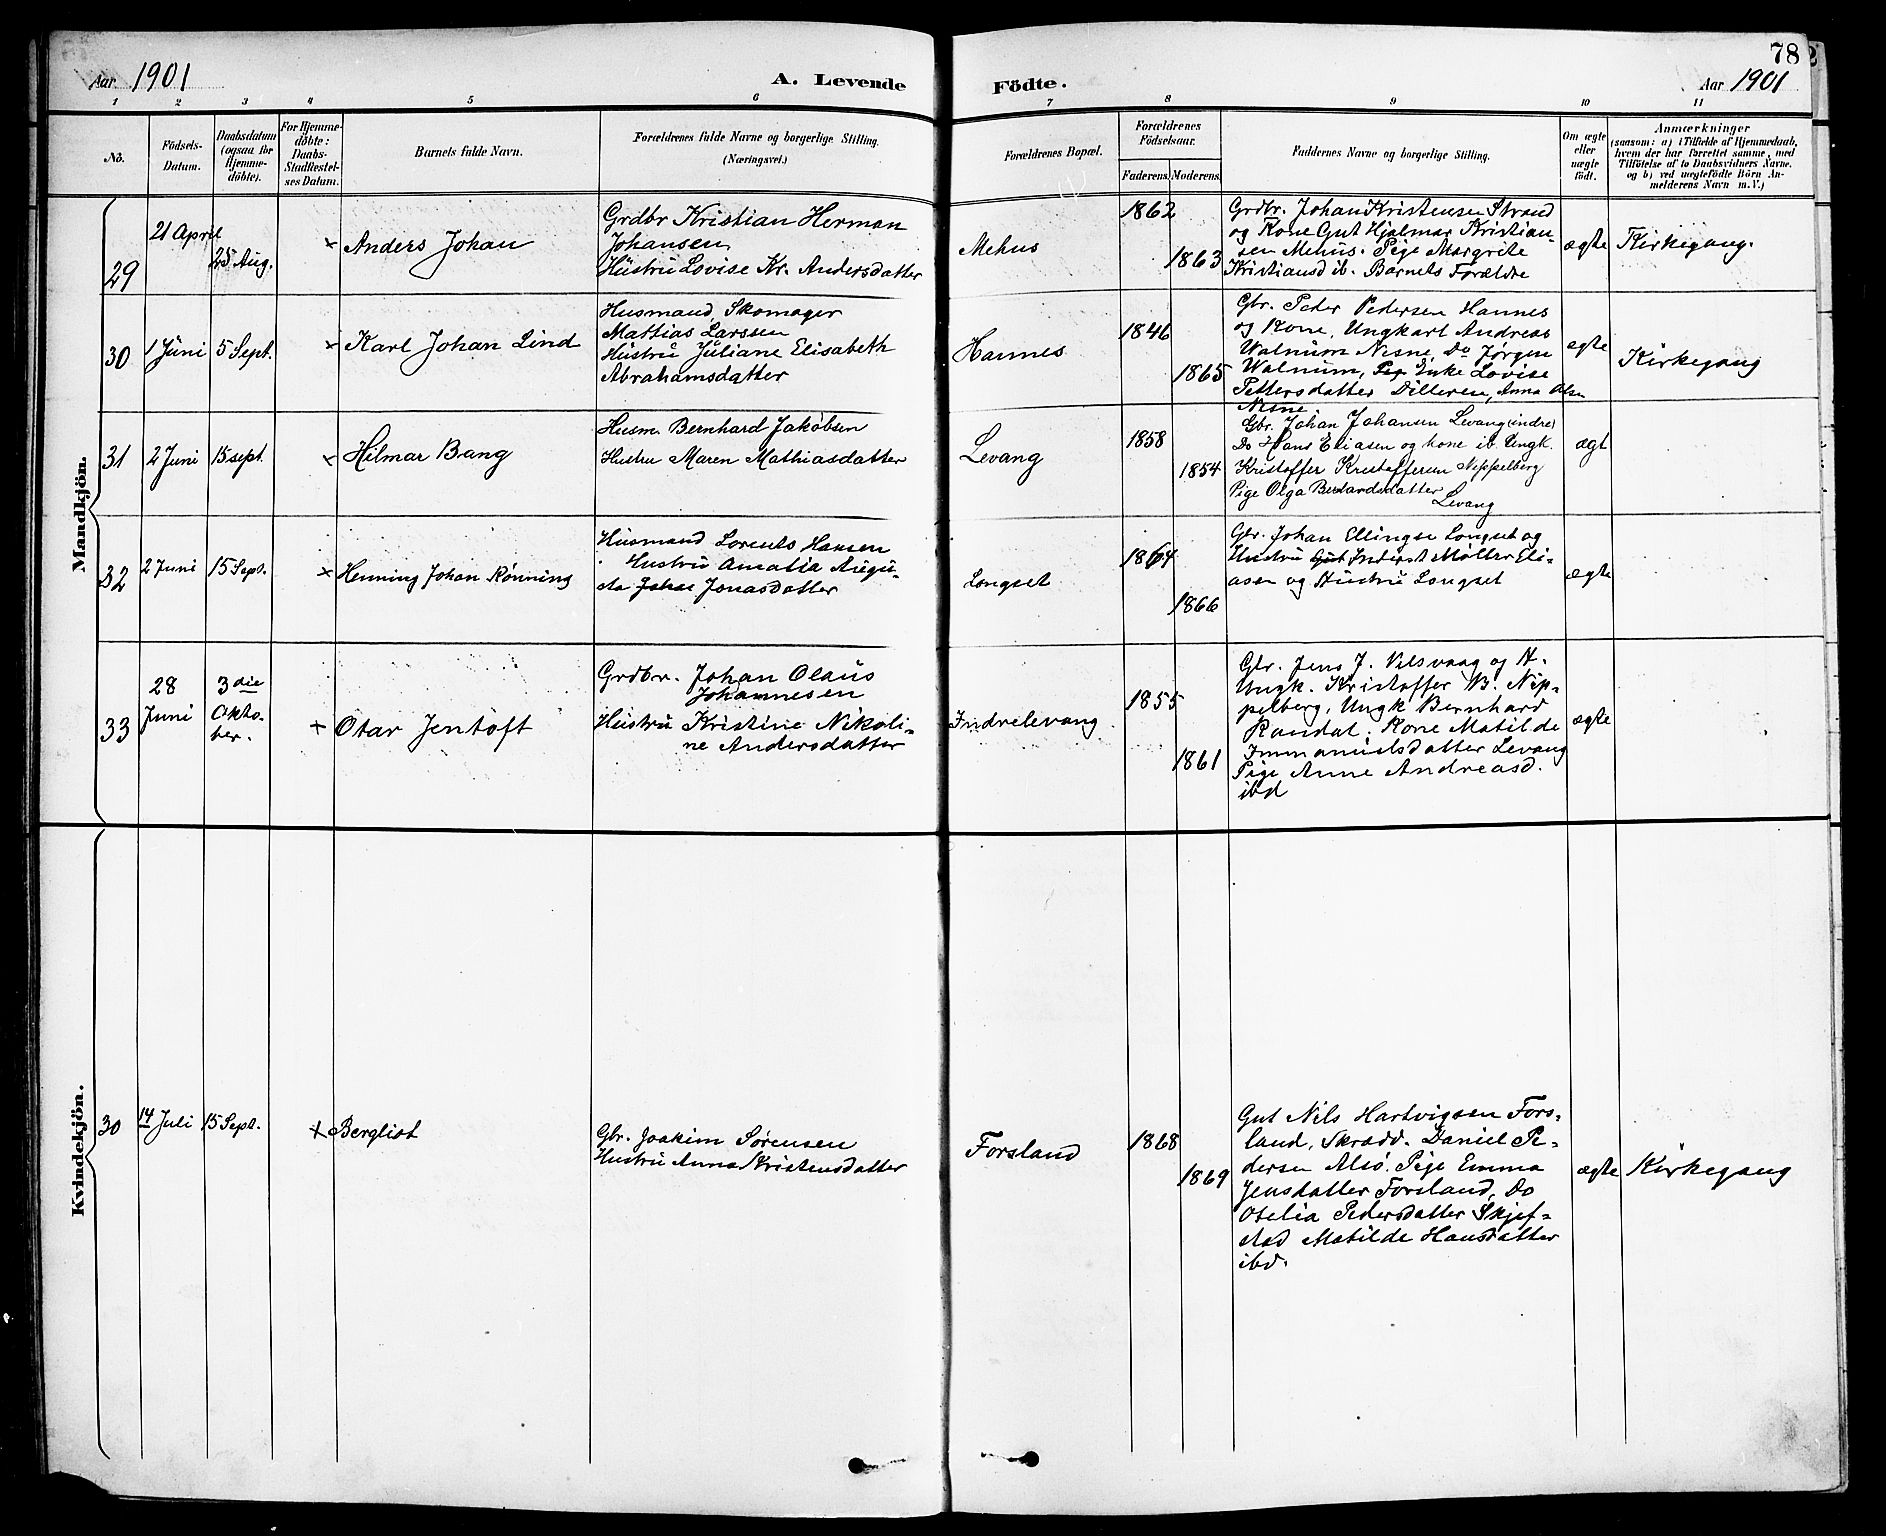 78
Aar 1901
A. Levende Födte.
Aar 1901
1 2 3 4 5 6 7 8 9 10 11
No.
Födsels-
Datum.
Daabsdatum
(ogsaa for
Hjemme-
döbte).
For Hjemme-
döbte:
Daabs-
Stadfæstel-
ses Datum.
Barnets fulde Navn.
Forældrenes fulde Navne og borgerlige Stilling.
(Næringsvei.)
Forældrenes Bopæl.
Forældrenes
Födselsaar.
Faderens. Moderens.
Faddernes Navne og borgerlige Stilling.
Om ægte
eller
uægte
födt.
Anmærkninger
(saasom: a) i Tilfælde af Hjemmedaab,
hvem der har forrettet samme, med
Tilföielse af to Daabsvidners Navne,
og b) ved uægtefödte Börn An-
melderens Navn m. V.)
Mandkjön.
29
21 April
25 Aug.
×
Anders Johan
Grdbr Kristian Herman
Johansen
Hustru Lovise Kr. Andersdatter
Mehus
1862
1863
Grdbr. Johan Kristensen Strand
og Kone Gut Hjalmar Kristian-
sen Mehus. Pige Margrite
Kristiansd ib. Barnets Forældre
ægte
Kirkegang.
30
1 Juni
5 Sept.
×
Karl Johan Lind
Husmand, Skomager
Mattias Larssen
Hustru Juliane Elisabeth
Abrahamsdatter
Hannes
1846
1865
Gbr. Peder Pedersen Hannes
og Kone, Ungkarl Andreas
Walnum Nesne, Do Jørgen
Walnum, Enke Lovise
Pettersdatter Dilleren, Anna Olsen
Nesne.
ægte
Kirkegang
31
2 Juni
15 sept.
×
Hilmar Bang
Husm. Bernhard Jakobsen
Hustru Maren Mathiasdatter
Levang
1858
1854
Gbr. Johan Johansen Levang (indre)
Do Hans Eliasen og kone ib. Ungk.
Kristoffer Kristoffersen Nippelberg
Pige Olga Berntardsdatter
Levang
ægt
32
2 Juni
15 Sept.
×
Henning Johan Rønning
Husmand Lorents Hansen
Hustru Amalia Augu-
sta Jonasdatter
Longset
1864
1866
Gbr. Johan Ellingse Longset og
Hustru Gut Inderst Møller Eli-
asen og Hustru Longset
ægte
33
28
Juni
3die
Okto-
ber.
×
Otar Jentoft
Grdbr. Johan Olaus
Johannesen
Hustru Kristine Nikoli-
ne Andersdatter
Indrelevang
1855
1861
Gbr. Jens J. Valsvaag og H.
Ungk. Kristoffer B. Nip-
pelberg, Ungk Bernhard
Randal, Kone Matilde
Immanuelsdatter Levang
Pige Anne Andreasd.
ibd
ægte
Kvindekjön.
30
14 Juli
15 Sept.
×
Bergliot
Gbr. Joakim Sørensen
Hustru Anna Kristensdatter
Forsland
1868
1869
Gut Nils Hartvigsen Fors-
land, Skrædd. Daniel Pe-
dersen Alsø. Pige Emma
Jensdatter Forsland, Do
Otelia Pedersdatter Skjef-
stad Matilde Hansdatter
ibd.
ægte
Kirkegang